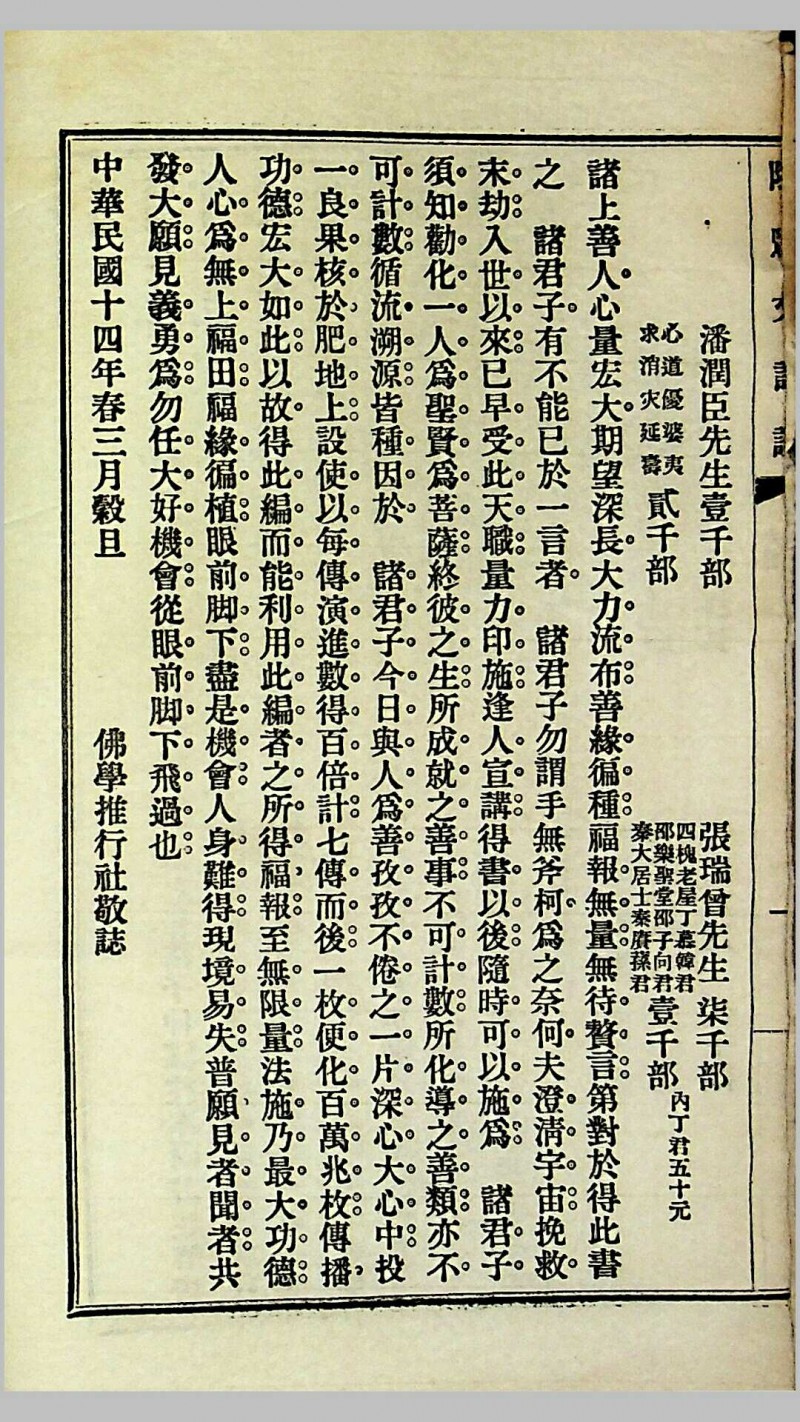 潘潤臣先生壹千部　張瑞曾先生　柒千部
心道優婆夷
求消灾延壽　貳千部
四槐老屋丁慕韓君
邵樂聖堂邵子向君
秦大居士秦賡蓀君　壹千部　內丁君五十元
諸上善人心量宏大期望深長大力流布善緣徧種福報無量無待贅言第對於得此書
之　諸君子有不能已於一言者　諸君子勿謂手無斧柯爲之奈何夫澄清宇宙挽救
末劫入世以來已早受此天職量力印施逢人宣講得書以後隨時可以施爲　諸君子
須知勸化一人爲聖賢爲菩薩終彼之生所成就之善事不可計數所化導之善類亦不
可計數循流溯源皆種因於　諸君子今日與人爲善孜孜不倦之一片深心大心中投
一良果核於肥地上設使以每傳演進數得百倍計七傳而後一枚便化百萬兆枚傳播
功德宏大如此以故得此編而能利用此編者之所得福報至無限量法施乃最大功德
人心爲無上福田福緣徧植眼前脚下盡是機會人身難得現境易失普願見者聞者共
發大願見義勇爲勿任大好機會從眼前脚下飛過也
中華民國十四年春三月穀旦　佛學推行社敬誌